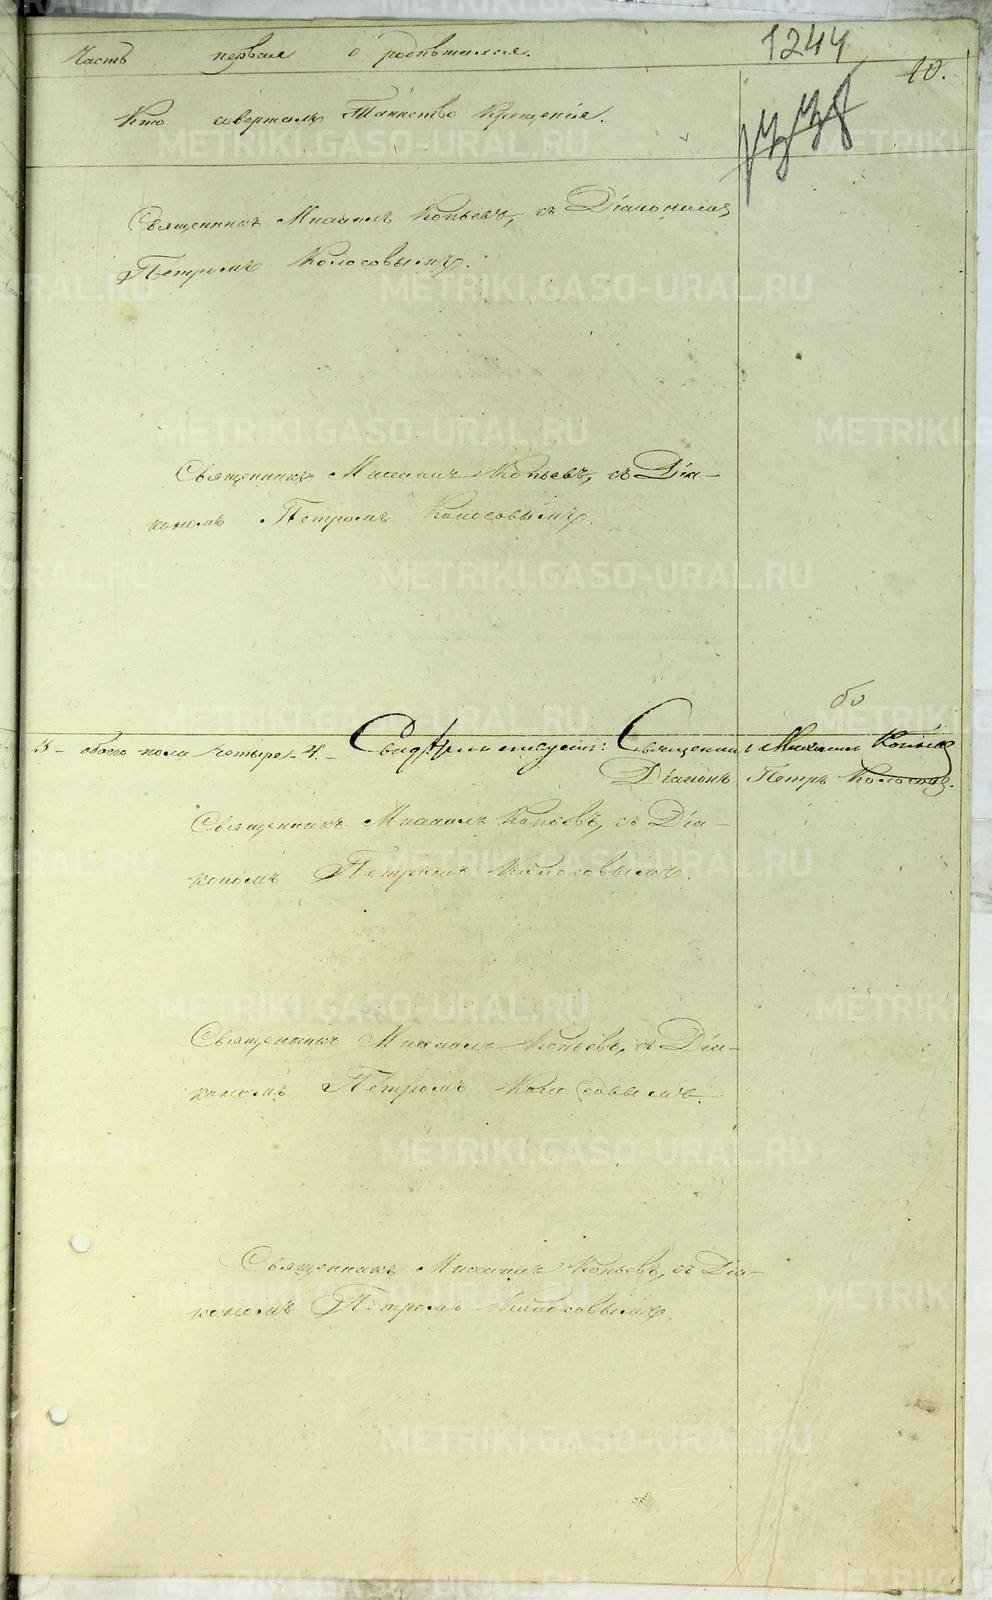 Часть первая о родившихся.
1244
10.
Кто совершалъ Таинство Крещенія.
Священникъ Михаилъ Копьевъ, съ Діакономъ
Петромъ Колосовымъ.
Священникъ Михаилъ Копьевъ, съ Діа-
кономъ Петромъ Колосовымъ.
бо
3 - обоего пола четыре 4. - Свидѣтельствуютъ: Священникъ Михаилъ Копьевъ
Діаконъ Петръ Колосовъ.
Священникъ Михаилъ Копьевъ, съ Діа-
кономъ Петромъ Колосовымъ.
Священникъ Михаилъ Копьевъ, съ Діа-
кономъ Петромъ Колосовымъ.
Священникъ Михаилъ Копьевъ, съ Діа-
кономъ Петромъ Колосовымъ.
METRIKI.GASO-URAL.RU